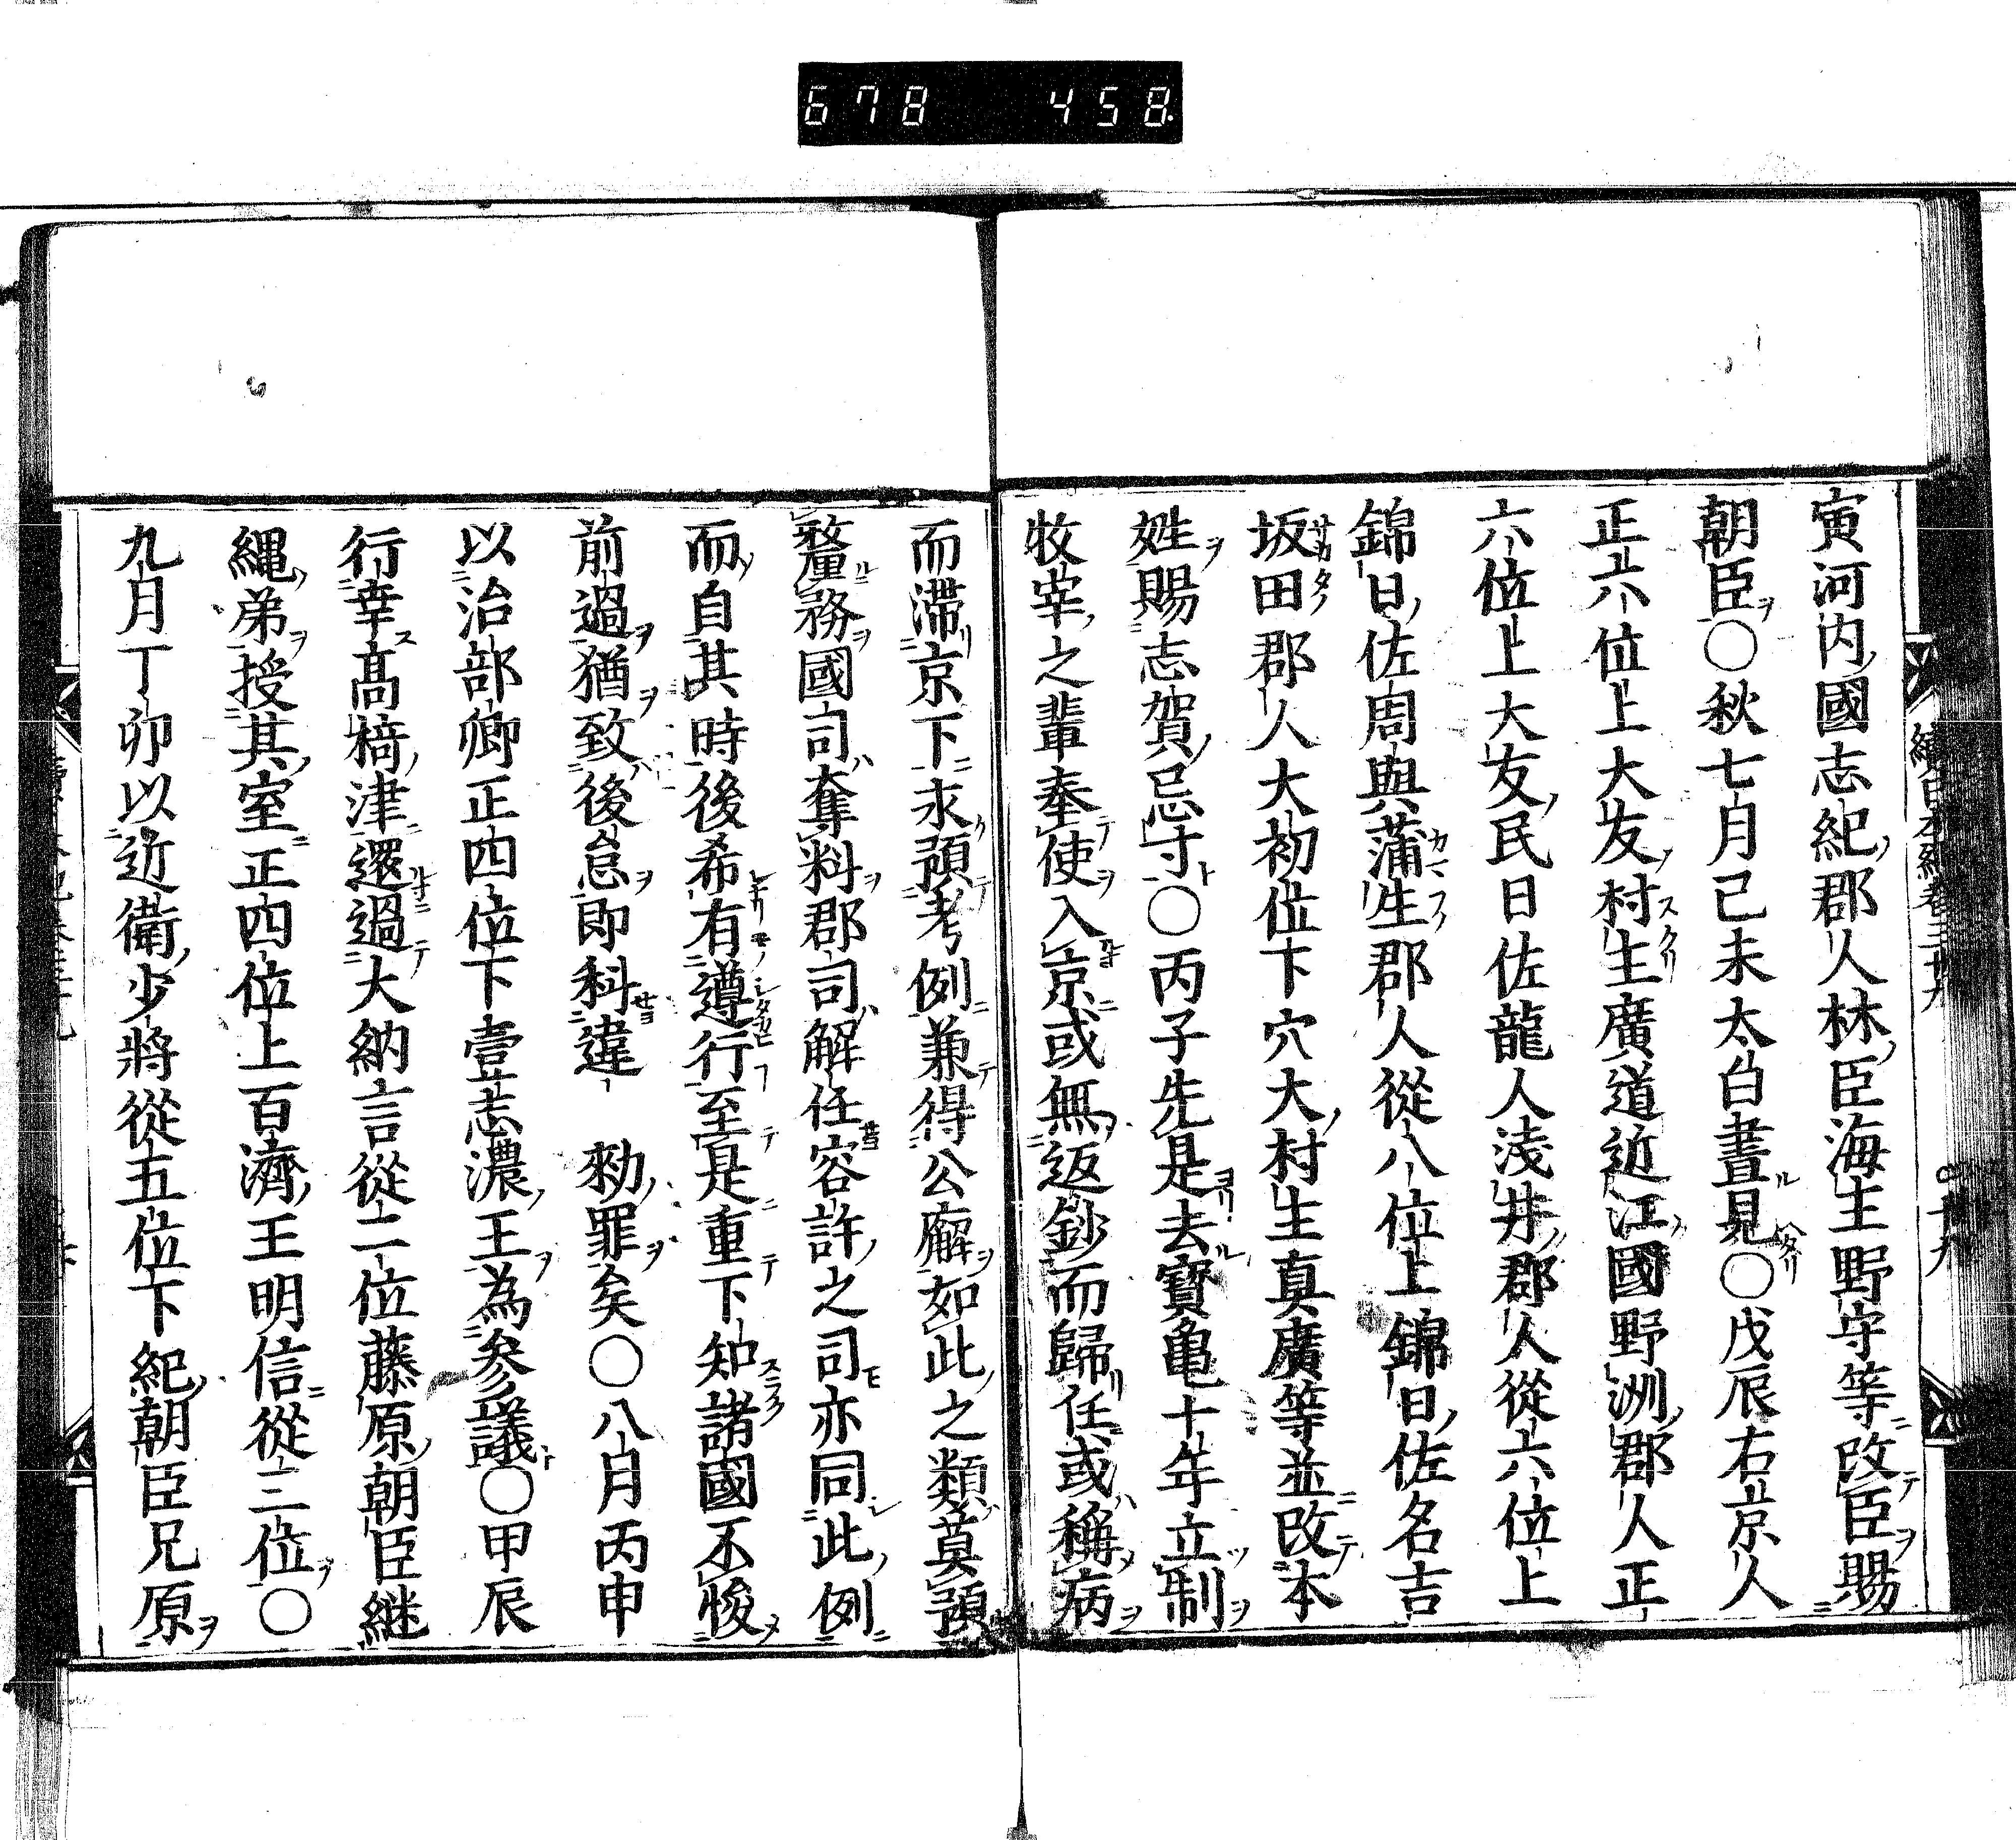 678 458
寅河内國志紀郡人林臣海主野守等改臣賜
朝臣〇秋七月己未太白晝見〇戊辰右京人
正六位上大友村主廣道近江國野洲郡人正
六位上大友民日佐龍人浅井郡人從六位上
錦日佐周與蒲生郡人從八位上錦日佐名吉
坂田郡人大初位下穴大村主真廣等並改本
姓賜志賀忌寸〇丙子先是去寳亀十年立制
牧宰之輩奉使入京或無返鈔而歸任或稱病
而滯京下求預考例兼得公廨如此之類莫預
釐務國司奪料郡司解任容許之司亦同此例
而自其時後希有遵行至是重下知諸國不悛
前過猶致後怠即科違 勑罪矣〇八月丙申
以治部卿正四位下壹志濃王為参議〇甲辰
行幸髙椅津還過大納言從二位藤原朝臣継
縄弟授其室正四位上百濟王明信從三位〇
九月丁卯以近衛少將從五位下紀朝臣兄原